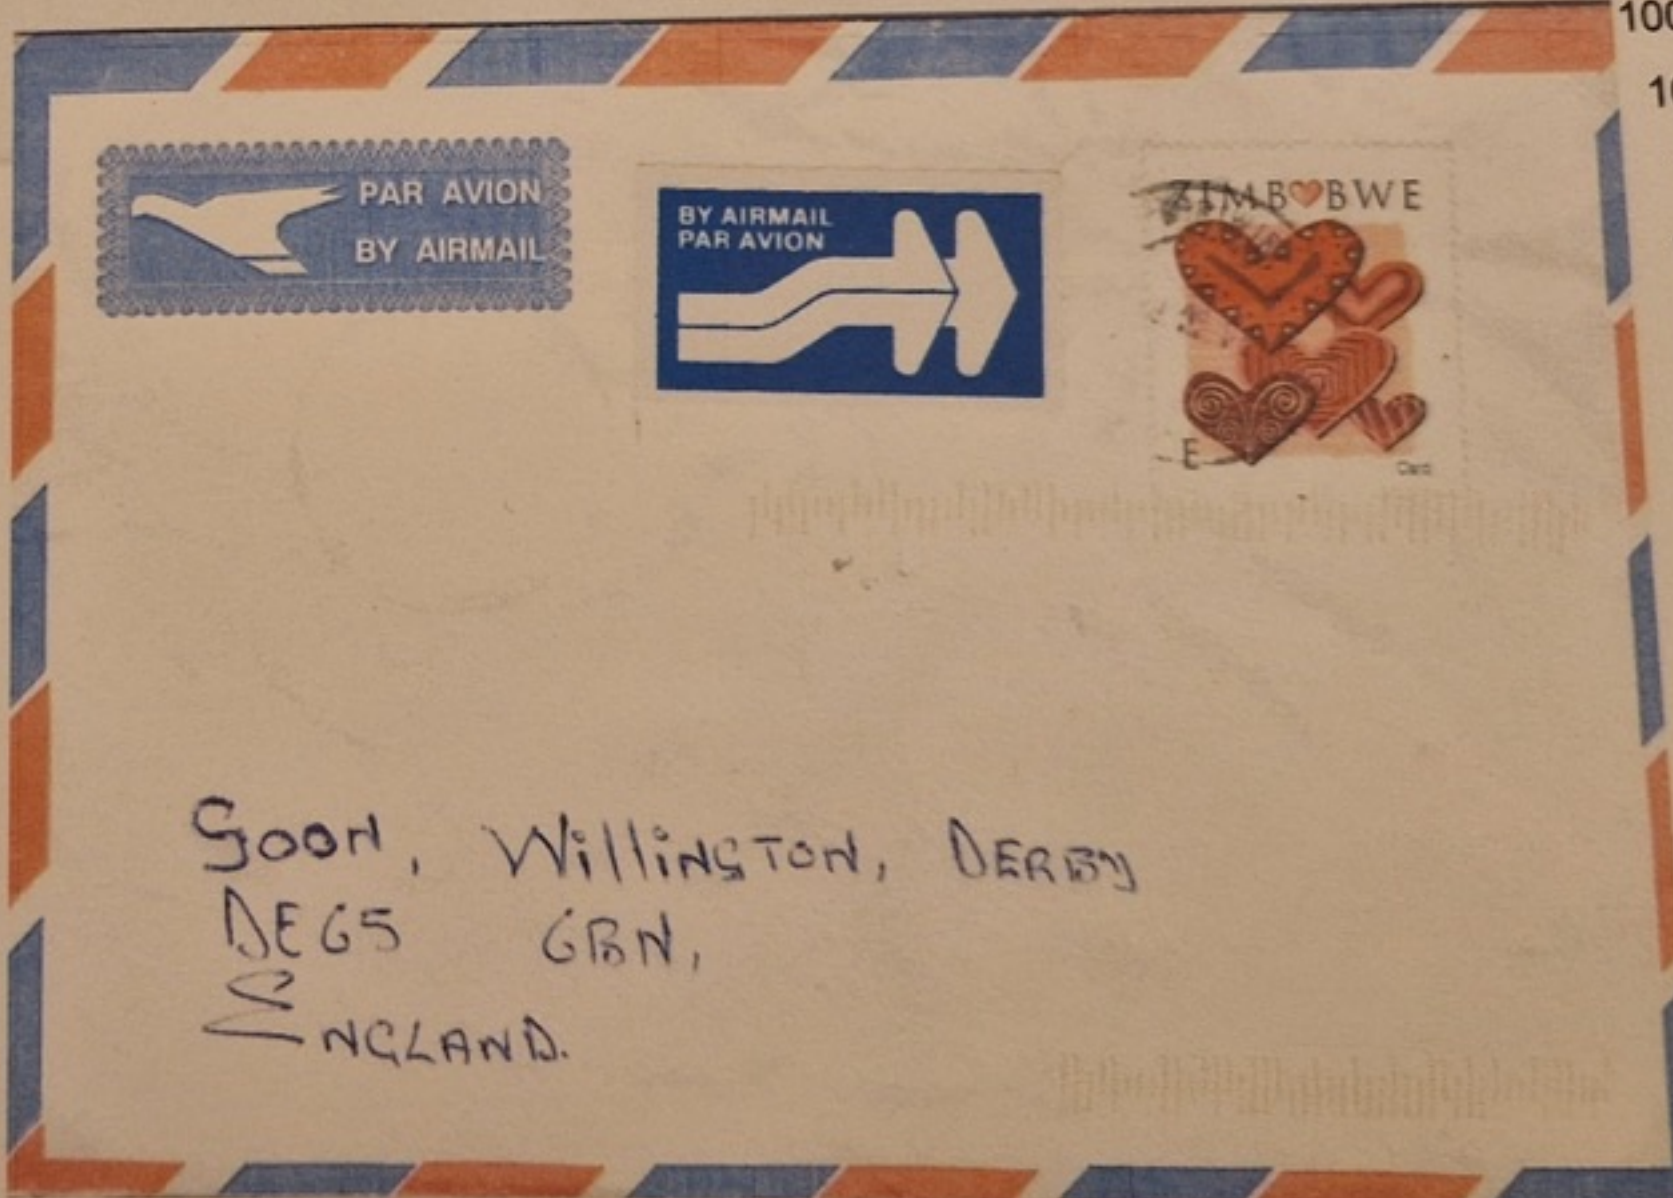 PAR AVION
BY AIRMAIL
BY AIRMAIL
PAR AVION
ZIMB❤BWE
E
Card
Soon, Willington, DERBY
DE65 6BN,
ENGLAND.